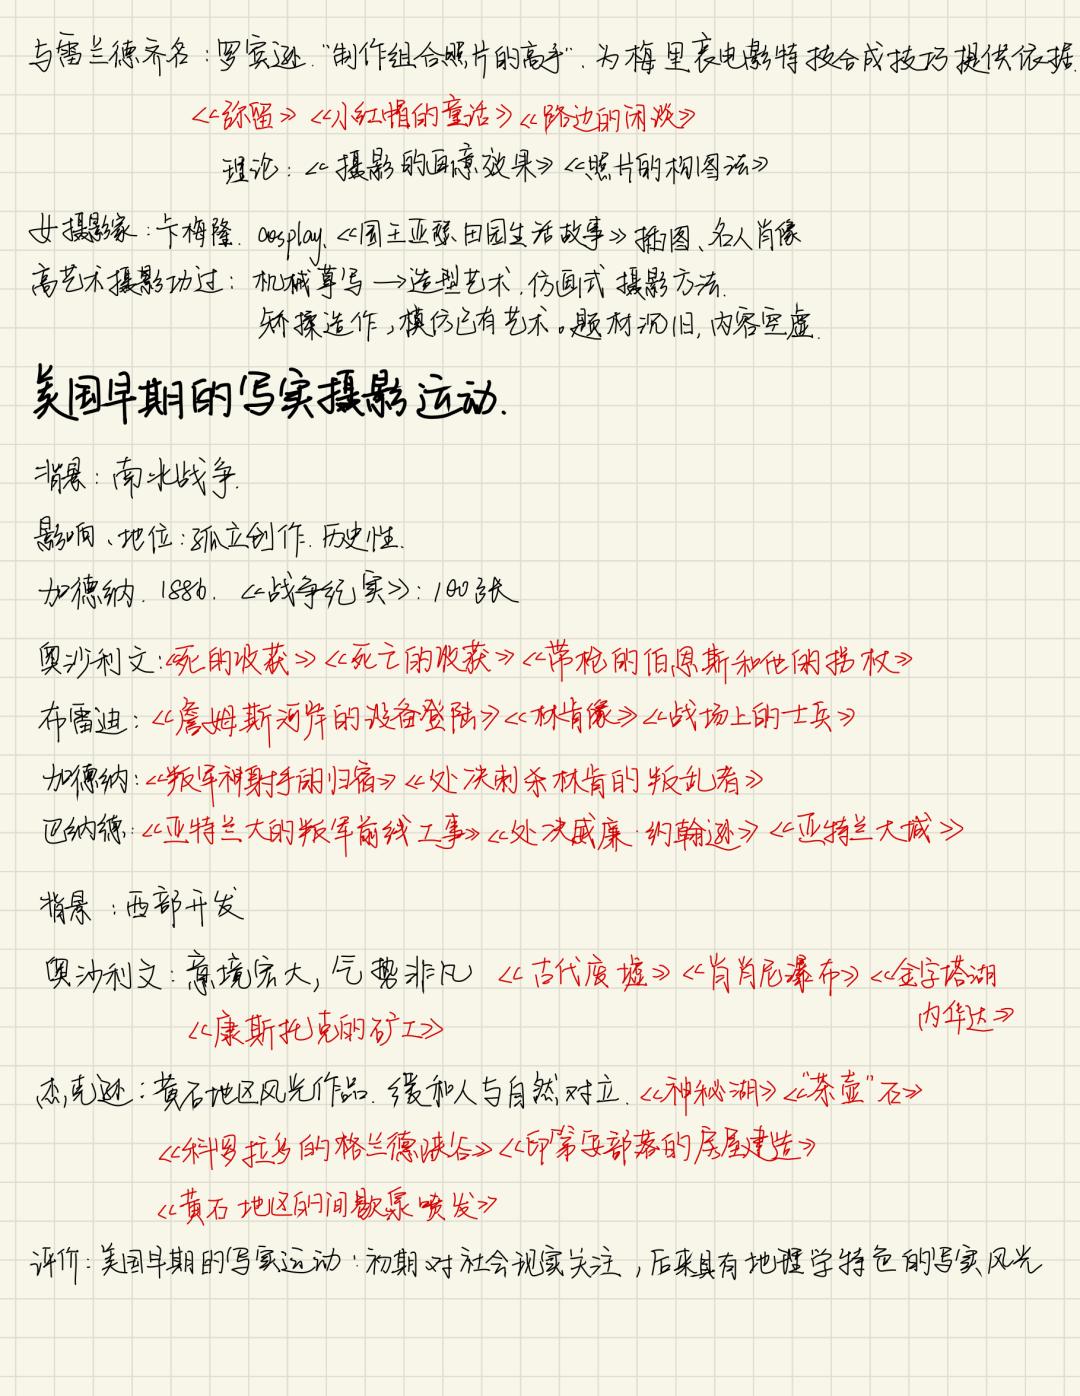 与雷兰德齐名：罗宾逊."制作组合照片的高手".为梅里爱电影特技合成技巧提供依据.
《弥留》《小红帽的童话》《路边的闲谈》
理论：《摄影的画意效果》《照片的构图法》
女摄影家：卡梅隆. cosplay、《国王亚瑟田园生活故事》插图、名人肖像
高艺术摄影功过：机械摹写→造型艺术.仿画式摄影方法.
矫揉造作,模仿已有艺术。题材沉旧,内容空虚.
美国早期的写实摄影运动.
背景：南北战争.
影响、地位：孤立创作.历史性.
加德纳. 1886. 《战争纪实》：100张
奥沙利文：《死的收获》《死亡的收获》《带枪的伯恩斯和他的拐杖》
布雷迪：《詹姆斯河岸的设备登陆》《林肯像》《战场上的士兵》
加德纳：《叛军神射手的归宿》《处决刺杀林肯的叛乱者》
巴纳德：《亚特兰大的叛军前线工事》《处决威廉·约翰逊》《亚特兰大城》
背景：西部开发
奥沙利文：意境宏大,气势非凡 《古代废墟》《肖肖尼瀑布》《金字塔湖
内华达》
《康斯托克的矿工》
杰克逊：黄石地区风光作品.缓和人与自然对立.《神秘湖》《"茶壶"石》
《科罗拉多的格兰德峡谷》《印第安部落的房屋建造》
《黄石地区的间歇泉喷发》
评价：美国早期的写实运动：初期对社会现实关注,后来具有地理学特色的写实风光